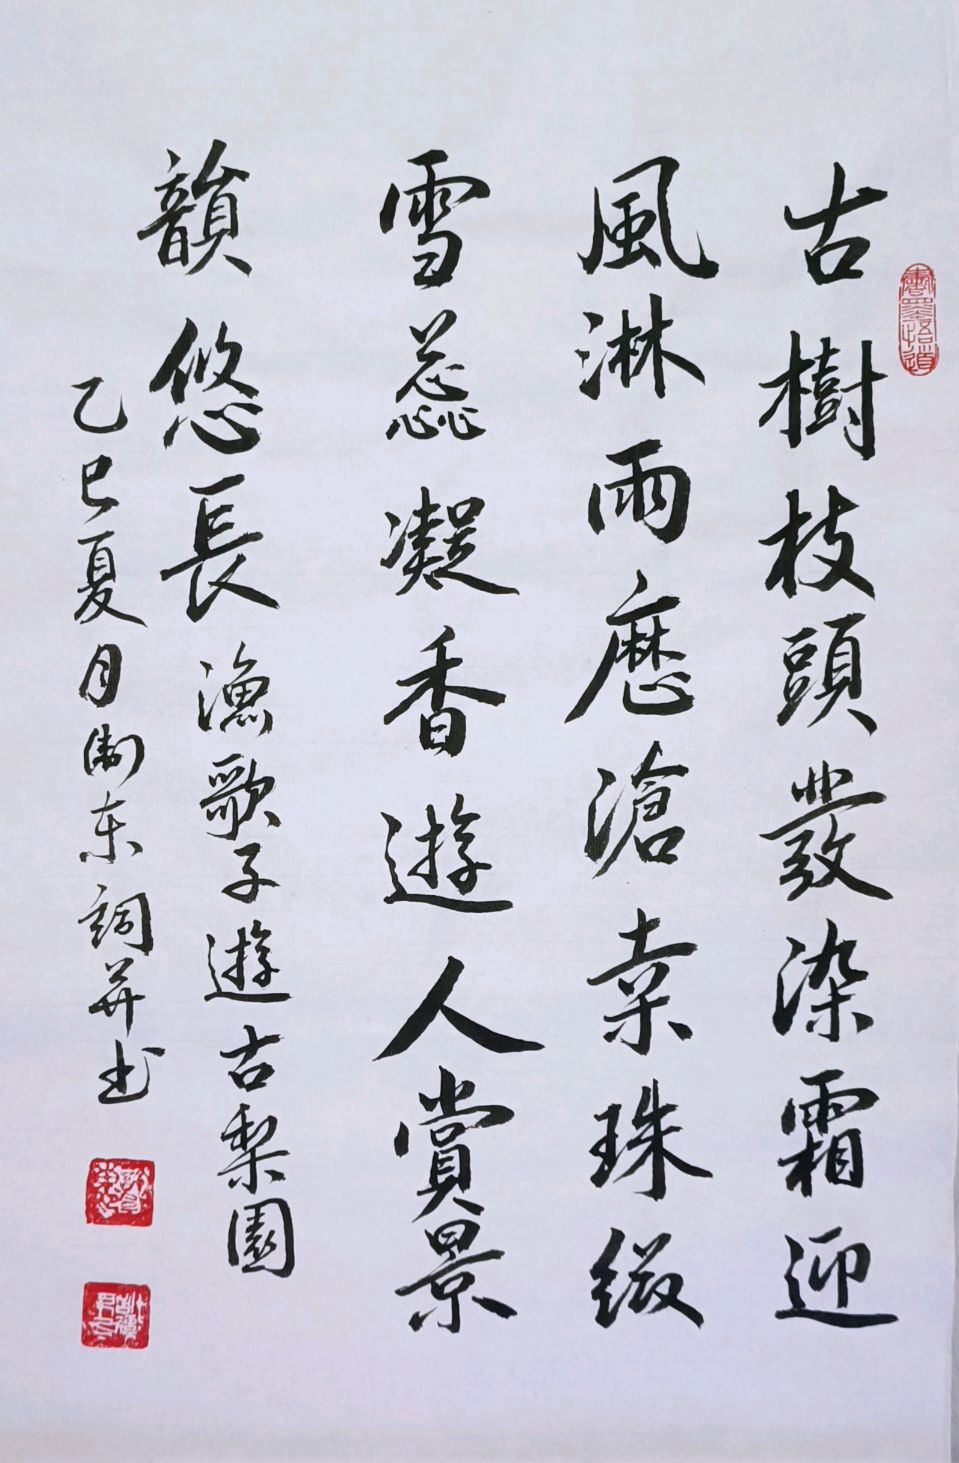 古樹枝頭發染霜迎
風淋雨歷滄桑珠綴
雪蕊凝香遊人賞景
韻悠長 漁歌子遊古梨園
乙巳夏月衛东詞并书